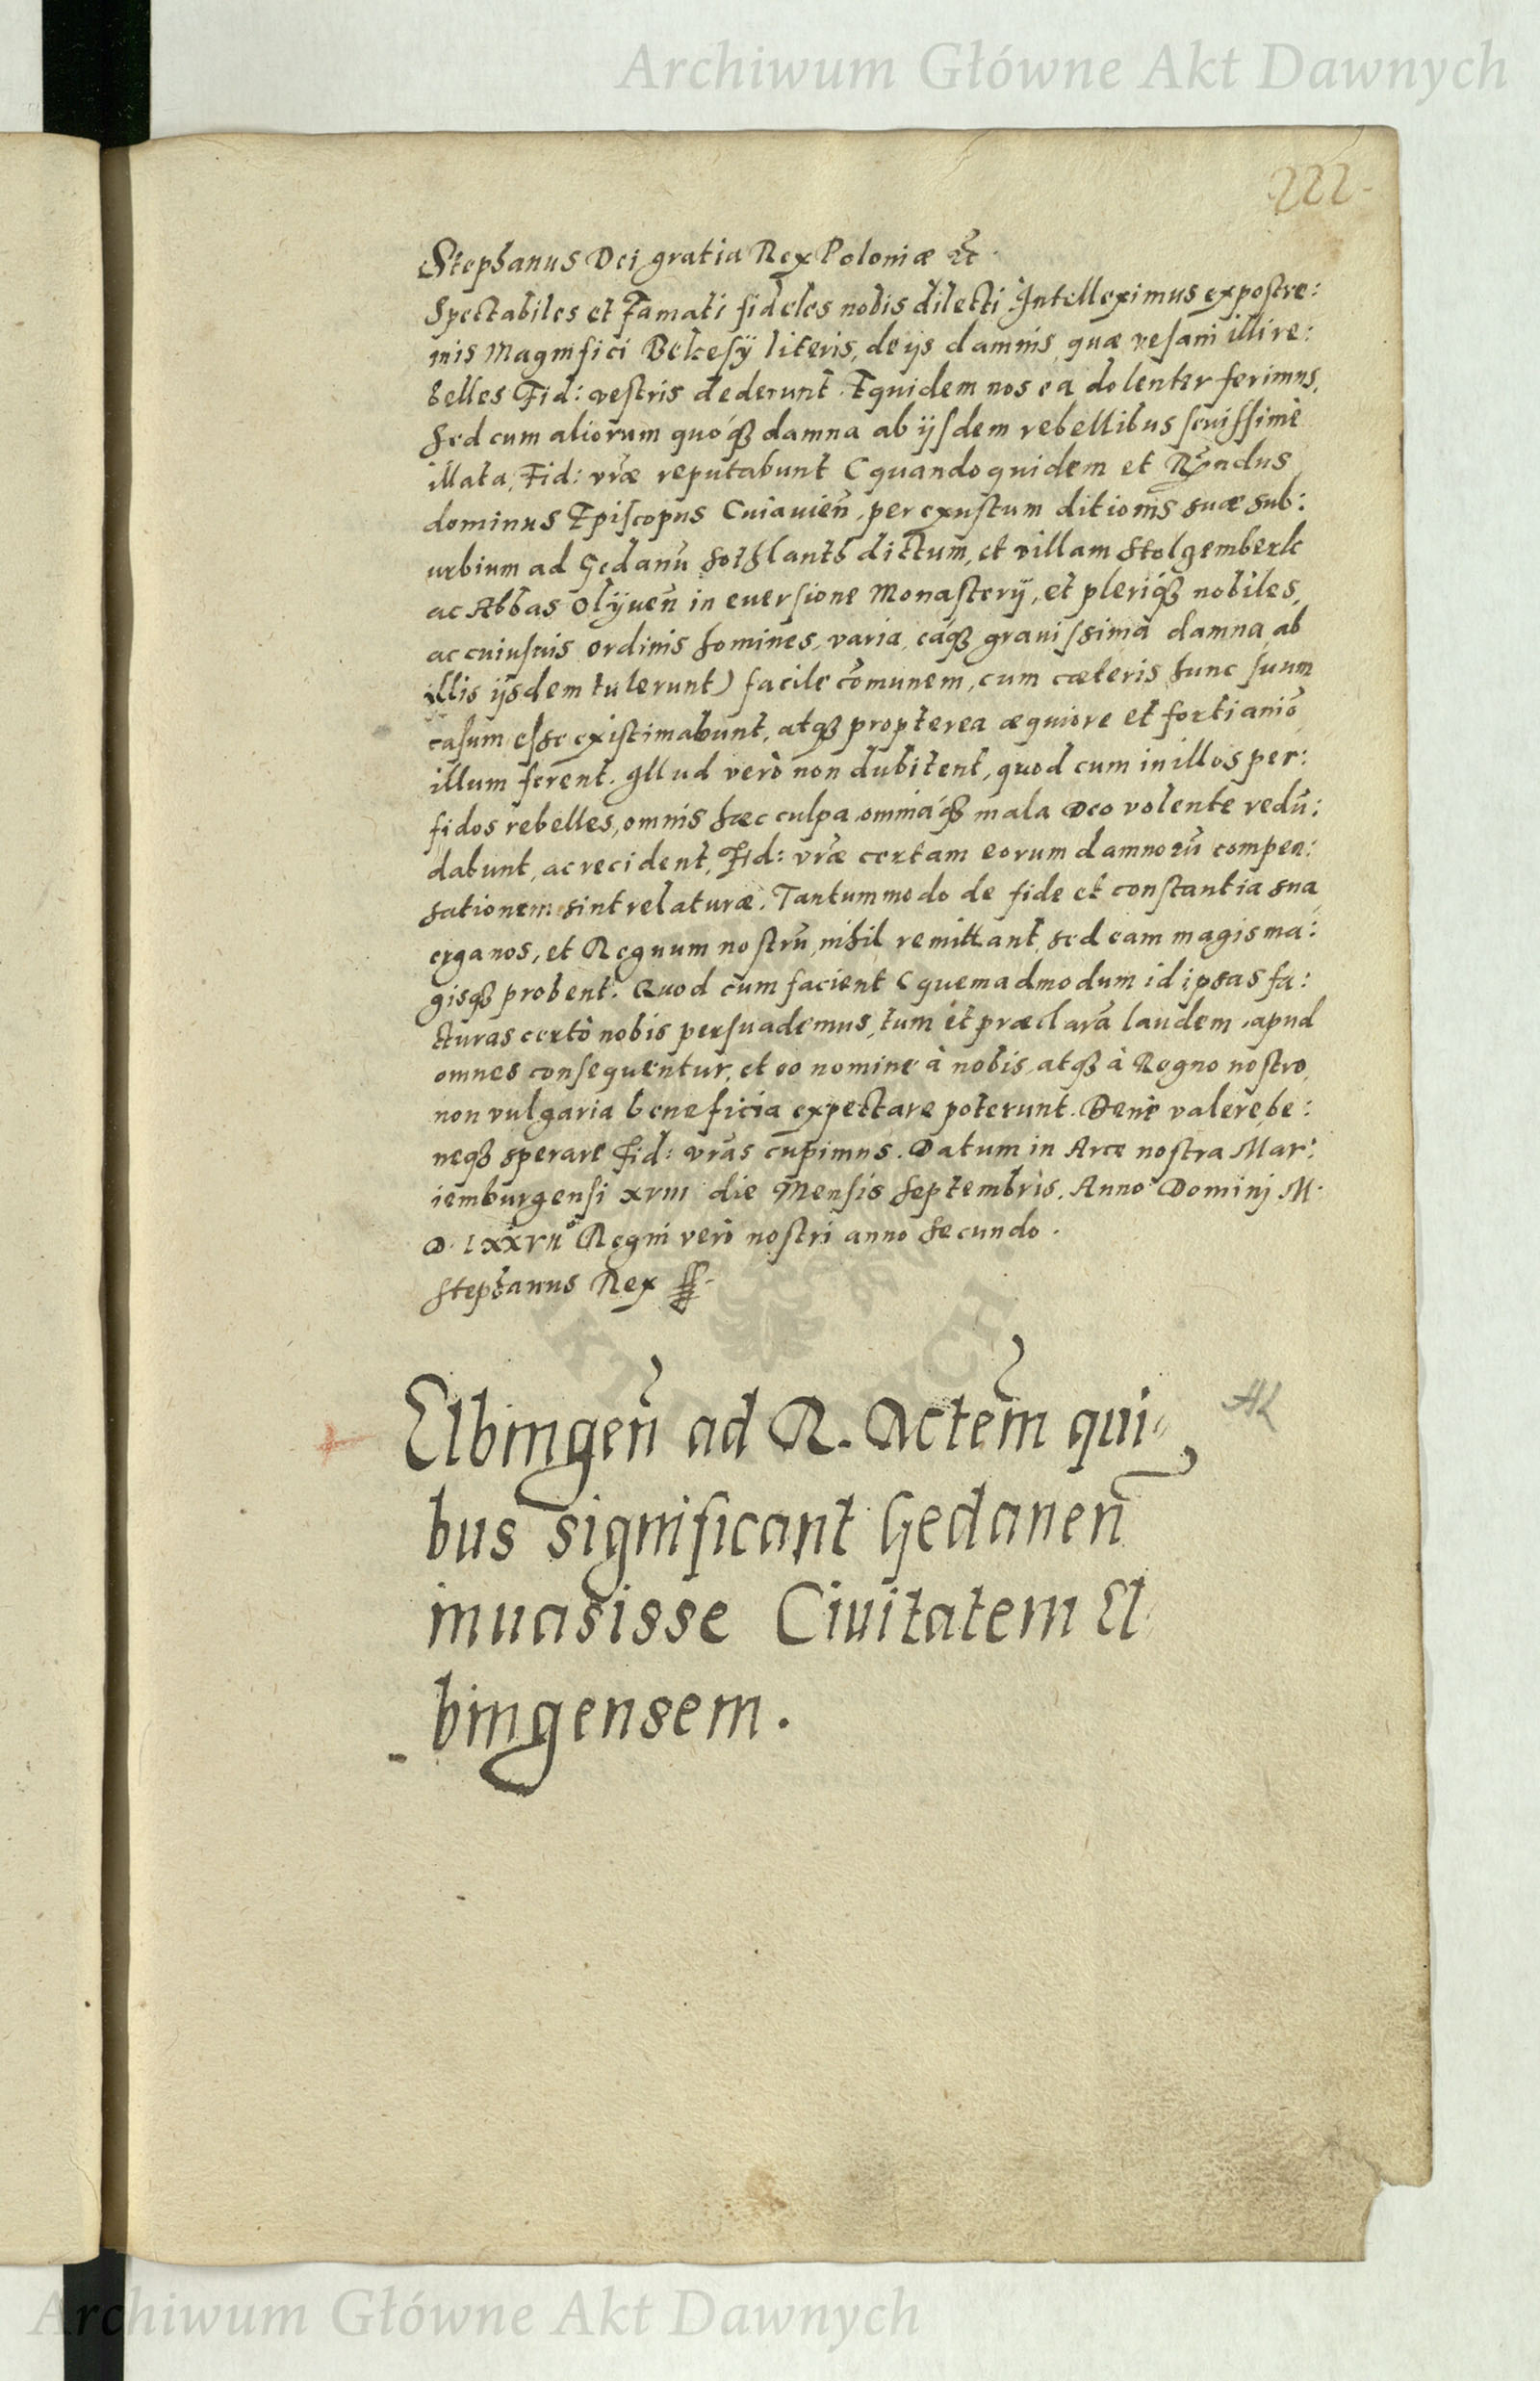 Archiwum Główne Akt Dawnych
222
Stephanus Dei gratia Rex Poloniæ etc̃
Spectabiles et Famati fideles nobis dilecti Intelleximus ex postre:
mis Magnifici Bekesÿ literis, de ijs damnis quæ vesani illi re:
belles Fid: vestris dederunt. Equidem nos ea dolenter ferimus,
sed cum aliorum quoq́ꝫ damna ab ijsdem rebellibus sęuissimè
illata, Fid: vr̃æ reputabunt (quandoquidem et Rñdus
dominus Episcopus Cuiauieñ, per exustum ditionis suæ sub:
urbium ad Gedanũ Hothlanth dictum, et villam Stolgemberk
ac Abbas Olÿueñ in euersione Monasterÿ, et pleriq́ꝫ nobiles,
ac cuiusuis ordinis homines, varia, eáqꝫ grauissima damna ab
illis ijsdem tulerunt) facile cõmunem, cum cæteris hunc suum
casum esse existimabunt, atqꝫ propterea æquiore et forti anĩo
illum ferent. Illud verò non dubitent, quod cum in illos per:
fidos rebelles, omnis hæc culpa omniáqꝫ mala Deo volente redũ:
dabunt, ac recident, Fid: vr̃æ certam eorum damnorũ compen:
sationem sint relaturæ. Tantummodo de fide et constantia sua
erga nos, et Regnum nostrũ, nihil remittant, sed eam magis ma:
gisqꝫ probent. Quod cum facient (quemadmodum id ipsas fa:
cturas certò nobis persuademus, tum et præclarã laudem, apud
omnes consequentur, et eo nomine à nobis, atqꝫ à Regno nostro,
non vulgaria beneficia expectare poterunt. Bene valere, be:
neqꝫ sperare Fid: vr̃as cupimus. Datum in Arce nostra Mar:
iemburgensi xviii die Mensis Septembris. Anno Dominj M.
D. lxxvii° Regni verò nostri anno secundo.
Stephanus Rex
Elbingeñ ad R. Mctem̃ qui
bus significant Gedaneñ
inuasisse Ciuitatem El
bingensem.
Archiwum Główne Akt Dawnych